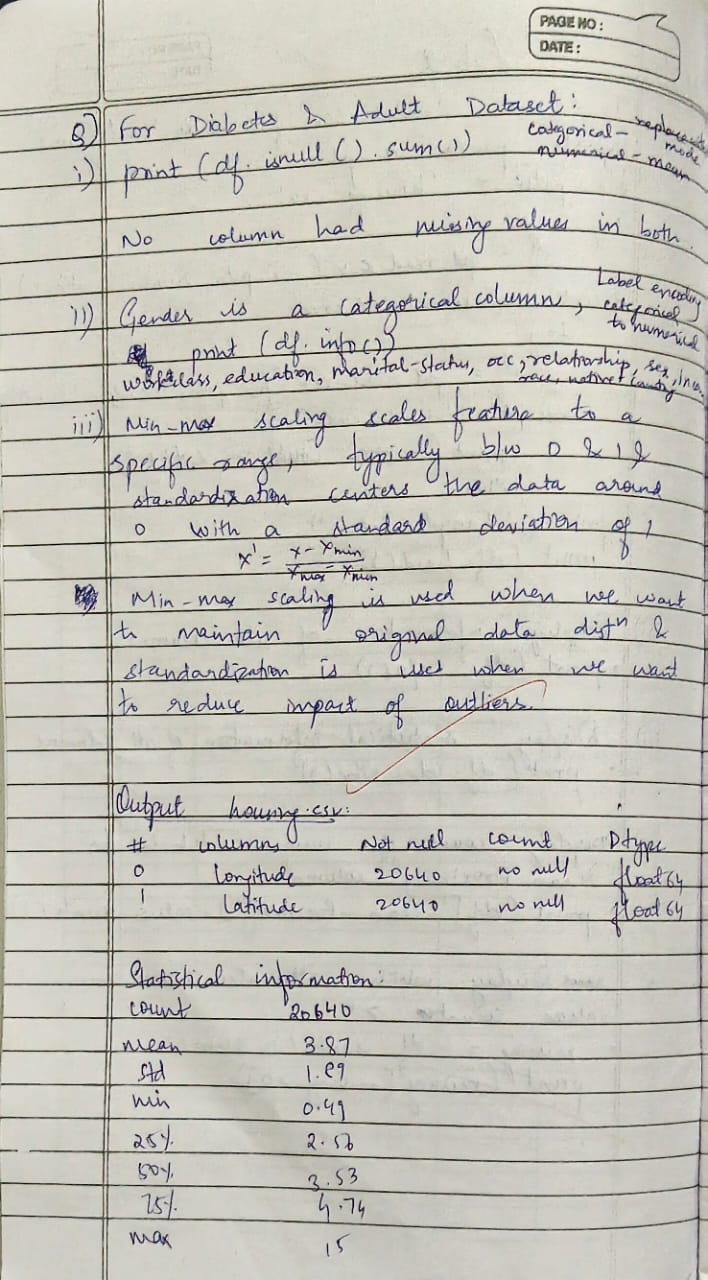 PAGE NO:
DATE:
Q) For Diabetes & Adult Dataset:
i) print (df. isnull (). sum())
categorical - replace with mode
numerical - mean
No column had missing values in both.
ii) Gender is a categorical column,
Label encoding
categorical
to numerical
print (df. info())
workclass, education, marital-status, occ, relationship, sex, Inco.
race, native country
iii) Min-max scaling scales feature to a
specific range, typically b/w 0 & 1 &
standardization centers the data around
0 with a standard deviation of 1
x' = x - xmin / xmax - xmin
Min-max scaling is used when we want
to maintain original data distn &
standardization is used when we want
to reduce impact of outliers.
Output housing.csv:
# columns Not null count Dtype
0 Longitude 20640 no null float64
1 Latitude 20640 no null float64
Statistical information:
count 20640
mean 3.87
std 1.89
min 0.49
25% 2.56
50% 3.53
75% 4.74
max 15